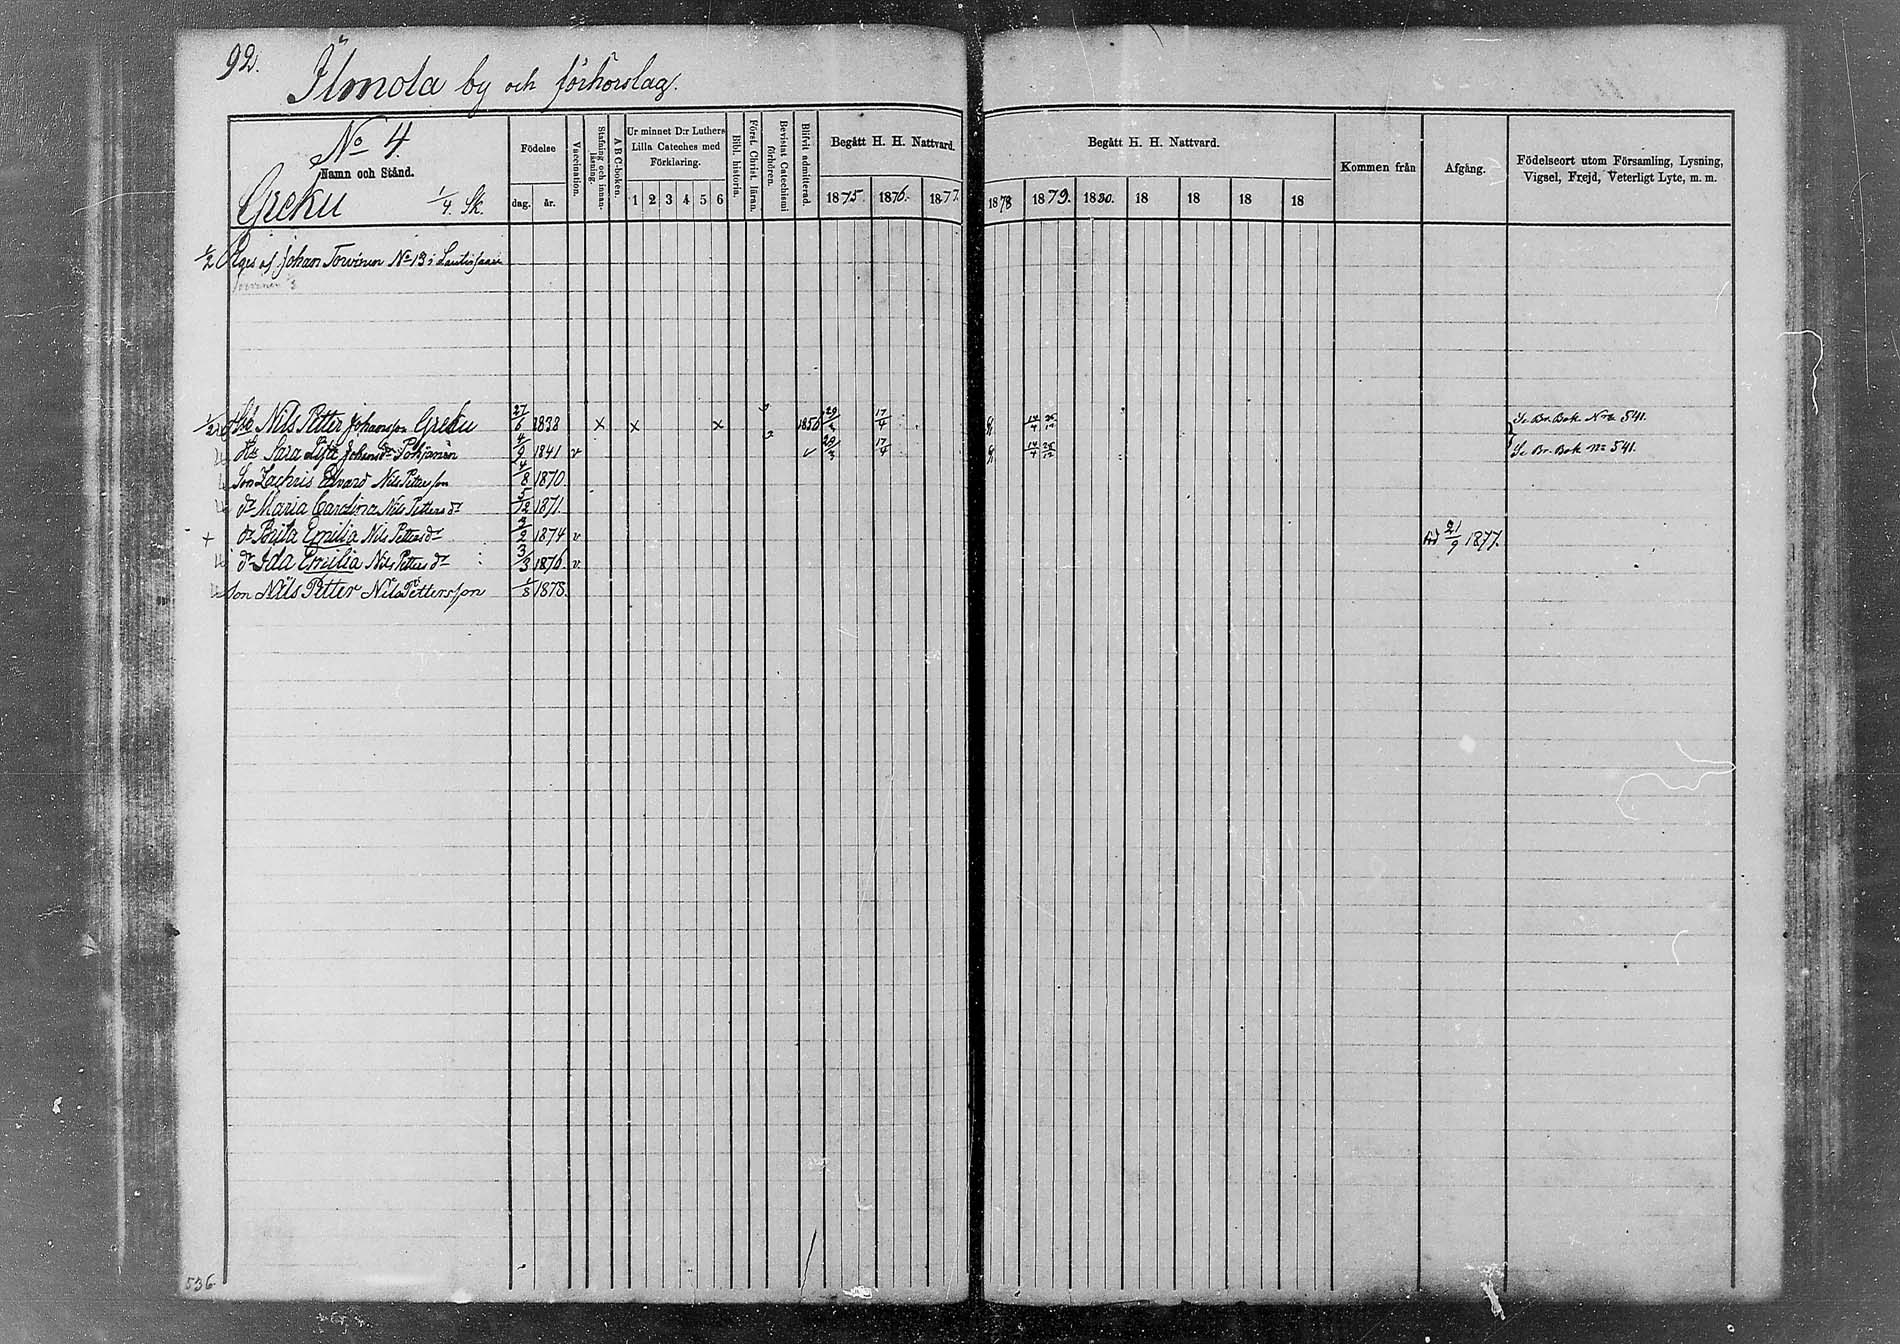 92.
Ilmola by och förhörslag.
No 4.
Namn och Stånd.
Greku 1/4. Sk.
Födelse
dag. år.
Vaccination.
Stafning och innan-läsning.
A B C-boken.
Ur minnet D:r Luthers
Lilla Cateches med
Förklaring.
1 2 3 4 5 6
Bibl. historia.
Först. Christ. läran.
Bevistat Catechismi förhören.
Blifvit admitterad.
Begått H. H. Nattvard.
1875. 1876. 1877.
Begått H. H. Nattvard.
1878 1879. 1880. 18 18 18 18
Kommen från
Afgång.
Födelseort utom Församling, Lysning,
Vigsel, Frejd, Veterligt Lyte, m. m.
1/2 Äges af Johan No 13 i
1/2 Nils Petter Johansson Greku 27/6 1838 x x x 1856 29/3 17/4 14/4 25/12 Se Br. Bok No 541.
Sara Johansdr Pohjanen 4/9 1841 v v 29/3 17/4 14/4 25/12 Se Br. Bok No 541.
Son Zachris Edvard Nils Petterson 4/8 1870.
dr Maria Carolina Nils Petters dr 5/12 1871.
+ dr Brita Emilia Nils Petters dr 2/2 1874 v död 21/9 1877.
dr Ida Emilia Nils Petters dr 3/3 1876. v
Son Nils Petter Nils Pettersson 1/8 1878.
536